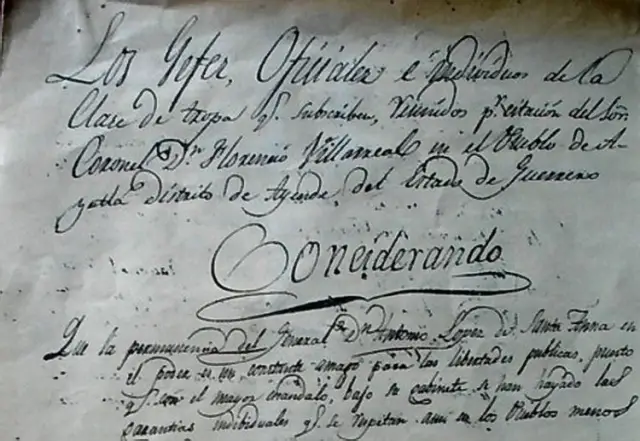 Los Gefes, Oficiales é individuos de la
Clase de tropa q.e subscriben, reunidos p.r citación del Sõr.
Coronel D.n Florencio Villarreal en el Pueblo de A-
yutla distrito de Ayende del Estado de Guerrero
Considerando
Que la permanencia del General D.n Antonio Lopez de Santa Anna en
el poder es un constante amago para las libertades publicas, puesto
q.e con el mayor escandalo, bajo su gabinete se han hayado las
garantias individuales q.e se respetan aun en los Pueblos menos